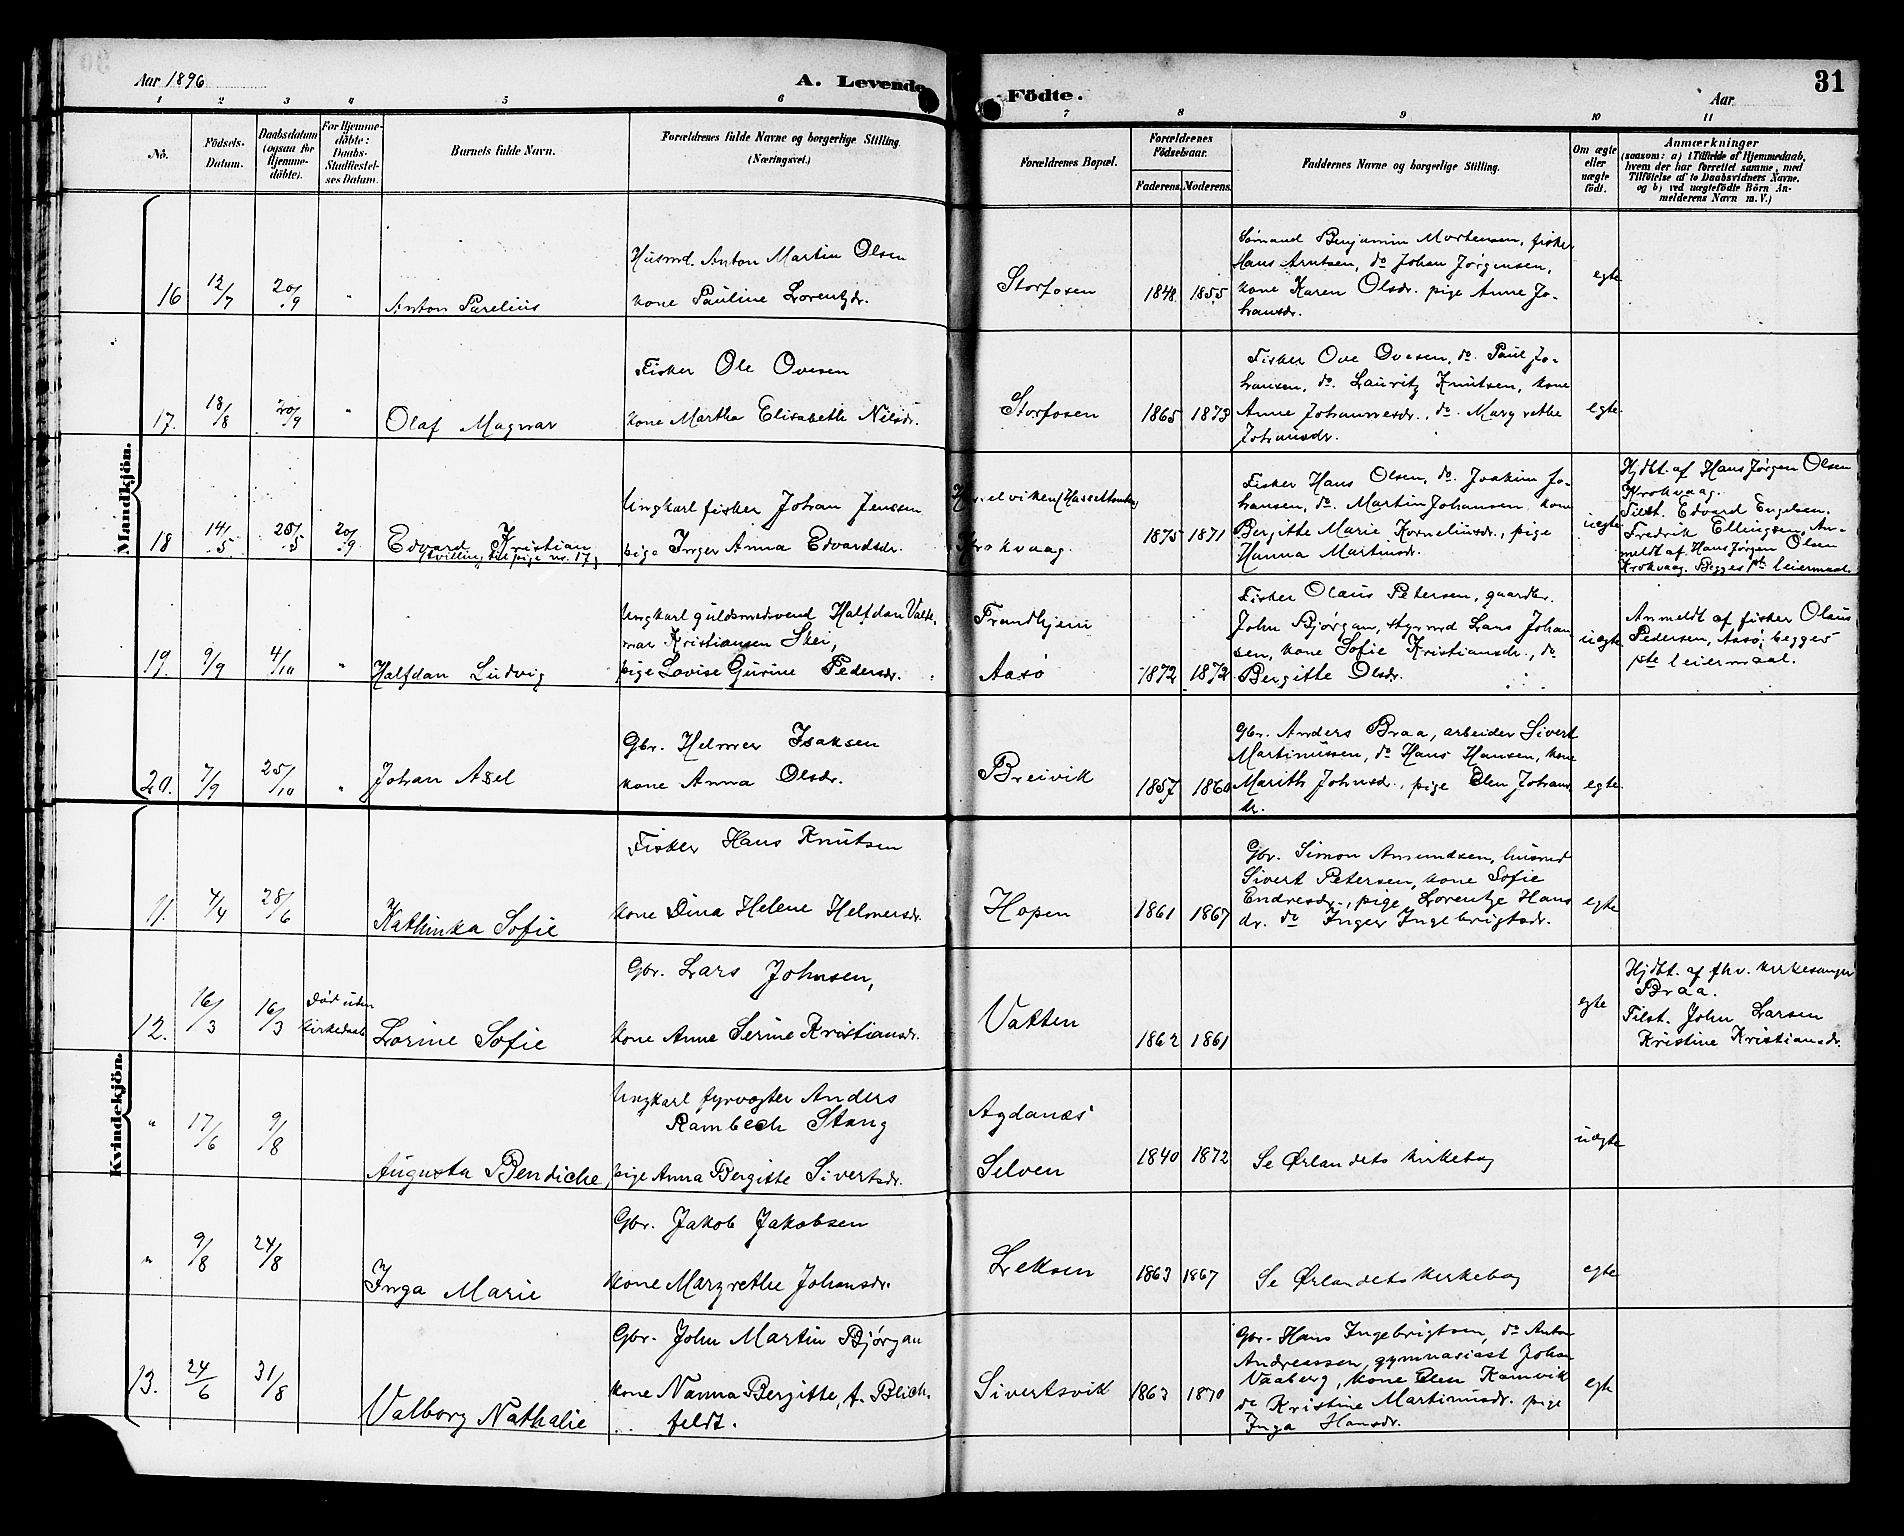 Aar 1896
A. Levende Födte.
Aar
31
1 2 3 4 5 6 7 8 9 10 11
No.
Födsels-Datum.
Daabsdatum (ogsaa for Hjemme-döbte).
For Hjemme-döbte: Daabs-Stadfæstel-ses Datum.
Barnets fulde Navn.
Forældrenes fulde Navne og borgerlige Stilling. (Næringsvei.)
Forældrenes Bopæl.
Forældrenes Födselsaar.
Faderens. Moderens.
Faddernes Navne og borgerlige Stilling.
Om ægte eller uægte födt.
Anmærkninger
(saasom: a) i Tilfælde af Hjemmedaab, hvem der har forrettet samme, med Tilföielse af to Daabsvidners Navne. og b) ved uægtefödte Börn An-melderens Navn m. V.)
Mandkjön.
16 12/7 20/9 " Anton Parelius
Husmd. Anton Martin Olsen
kone Pauline Lorentzdr.
Storfosen 1848 1855
Sömand Benjamin Mortensen, fisker
Hans Arntsen, do Johan Jørgensen,
kone Karen Olsdr. pige Anne Jo-
hansdr.
egte
17. 18/8 20/9 " Olaf Magnar
Fisker Ole Ovesen
kone Martha Elisabeth Nilsdr.
Storfosen 1865 1873
Fisker Ove Ovesen, do. Paul Jo-
hansen, do. Lauritz Knutsen, kone
Anne Johannesdr., do. Margrethe
Johansdr.
egte
18 14/5 25/5 20/9 Edvard Kristian
tvilling til pige nr. 17
Ungkarl fisker Johan Jenssen
pige Inger Anna Edvardsdr.
Krokvaag. 1875 1871
Fisker Hans Olsen, do. Joakim Jo-
hansen, do. Martin Johansen, kone
Bergitte Marie Korneliusdr., pige
Hanna Martinsdr.
uegte
Hjdbt. af Hans Jørgen Olsen
Krokvaag.
Tilst. Edvard Engelsen.
Fredrik Ellingsen, An-
meldt af Hans Jørgen Olsen
Krokvaag. Begges 1ste leiermaal.
19. 9/9 4/10 " Halfdan Ludvig
Ungkarl guldsmedsvend Halfdan Valde-
mar Kristiansen Skei,
pige Lovise Gurine Pedersdr.
Trondhjem
Aasö 1872 1872
Fisker Olaus Petersen, gaardbr.
John Bjørgan, styrmd Lars Johan
sen, kone Sofie Kristiansdr., do
Bergitte Olsdr.
uegte
Anmeldt af fisker Olaus
Pedersen, Aasö, begges
1ste leiermaal.
20. 7/9 25/10 " Johan Axel
Gbr. Helmer Isaksen
kone Anna Olsdr.
Breivik 1857 1860
Gbr. Anders Braa, arbeider Sivert
Martinussen, do Hans Hansen, kone
Marith Johnsdr., pige Elen Johans
dr.
egte
Kvindekjön.
11. 4/4 28/6 Kathinka Sofie
Fisker Hans Knutsen
kone Dina Helene Helmersdr.
Hopen 1861 1867
Gbr. Simon Amundsen, husmd
Sivert Petersen, kone Sofie
Endresdr., pige Lorentze Hans
dr. do Inger Ingebrigtsdr.
egte
12. 16/3 16/3 Död uden kirkedaab Lorine Sofie
Gbr. Lars Johnsen,
kone Anne Serine Kristiansdr.
Vatten 1862 1861
egte
Hjdbt. af fhv. kirkesanger
Braa.
Tilst. John Larsen
Kristine Kristiansdr.
" 17/6 9/8 Augusta Bendicke
Ungkarl fyrvogter Anders
Rambech Stang
pige Anna Bergitte Sivertsdr.
Agdanæs
Selven 1840 1872
Se Ørlandets kirkebog
uegte
" 9/8 24/8 Inga Marie
Gbr. Jakob Jakobsen
kone Margrethe Johansdr.
Leksen 1863 1867
Se Ørlandets kirkebog
egte
13. 24/6 31/8 Valborg Nathalie
Gbr. John Martin Bjørgan
kone Nanna Bergitte, f. Blich-
feldt.
Sivertsvik 1863 1870
Gbr. Hans Ingebrigtsen, do Anton
Andreassen, gymnasiast Johan
Vaaberg, kone Elen Ramvik
do Kristine Martinusdr. pige
Inga Hansdr.
egte